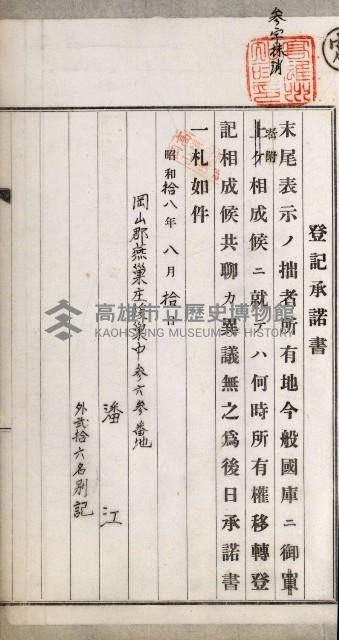 参字抹消
登記承諾書
末尾表示ノ拙者所有地今般國庫ニ御買
寄附
上ケ相成候ニ就テハ何時所有權移轉登
記相成候共聊カ異議無之爲後日承諾書
一札如件
昭和拾八年八月拾日
岡山郡燕巢庄燕巢中参六参番地
潘江
外弐拾六名別記
高雄市立歷史博物館
KAOHSIUNG MUSEUM OF HISTORY